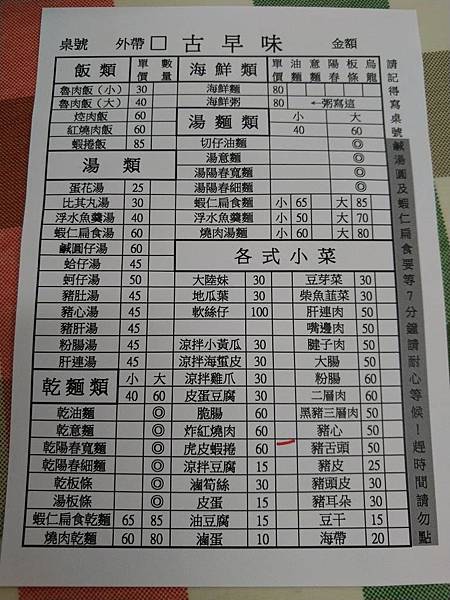 桌號 外帶□ 古早味 金額
飯類 單價 數量
魯肉飯（小） 30
魯肉飯（大） 40
焢肉飯 60
紅燒肉飯 60
蝦捲飯 85
湯類
蛋花湯 25
比其丸湯 30
浮水魚羹湯 40
蝦仁扁食湯 40
鹹圓仔湯 60
蛤仔湯 45
蚵仔湯 50
豬肚湯 45
豬心湯 45
豬肝湯 45
粉腸湯 45
肝連湯 45
乾麵類 小 大
40 60
乾油麵 ◎
乾意麵 ◎
乾陽春寬麵 ◎
乾陽春細麵 ◎
乾板條 ◎
湯板條 ◎
蝦仁扁食乾麵 65 85
燒肉乾麵 60 80
海鮮類 單價 油麵 意麵 陽春 板條 烏龍
海鮮麵 80
海鮮粥 80 ←粥寫這
湯麵類 小 大
40 60
切仔油麵 ◎
湯意麵 ◎
湯陽春寬麵 ◎
湯陽春細麵 ◎
蝦仁扁食麵 小 65 大 85
浮水魚羹麵 小 50 大 70
燒肉湯麵 小 60 大 80
各式小菜
大陸妹 30 豆芽菜 30
地瓜葉 30 柴魚韮菜 30
軟絲仔 100 肝連肉 50
嘴邊肉 50
涼拌小黃瓜 30 腱子肉 50
涼拌海蜇皮 30 大腸 50
涼拌雞爪 30 粉腸 60
皮蛋豆腐 30 二層肉 60
脆腸 60 黑豬三層肉 50
炸紅燒肉 60 豬心 50
虎皮蝦捲 60 豬舌頭 50
涼拌豆腐 15 豬皮 25
滷筍絲 30 豬頭皮 30
皮蛋 15 豬耳朵 30
油豆腐 15 豆干 15
滷蛋 10 海帶 20
請記得寫桌號
鹹湯圓及蝦仁扁食要等7分鐘請耐心等候！趕時間請勿點